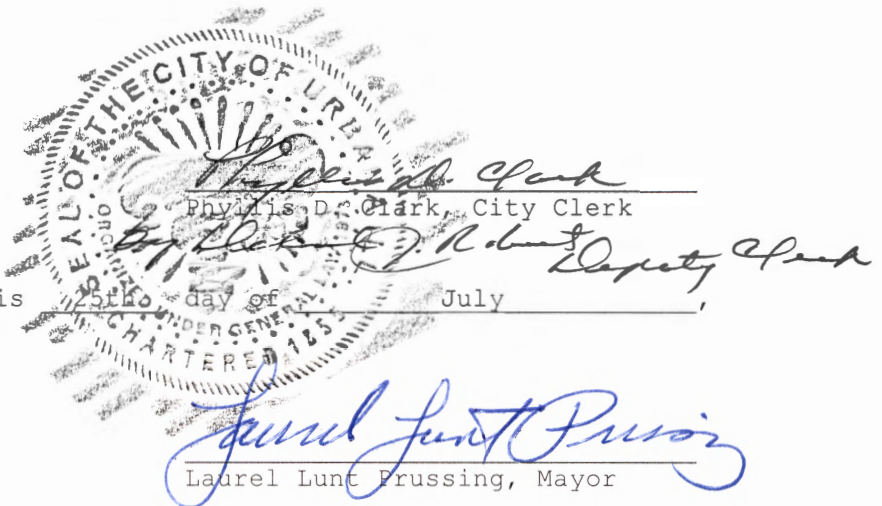 SEAL OF THE CITY OF URBANA
ORGANIZED UNDER GENERAL LAW
CHARTERED 1855
Phyllis D. Clark
Phyllis D. Clark, City Clerk
By J. Robert Deputy Clerk
is 25th day of July,
Laurel Lunt Prussing
Laurel Lunt Prussing, Mayor